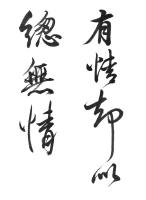 有情却似
總無情